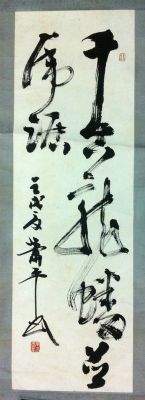 千古龍蟠並
虎踞
壬戌夏蕭平